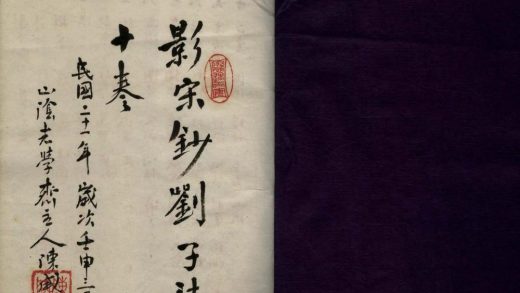 影宋鈔劉子
十卷
民國二十一年歲次壬申三
山陰老學齋主人陳